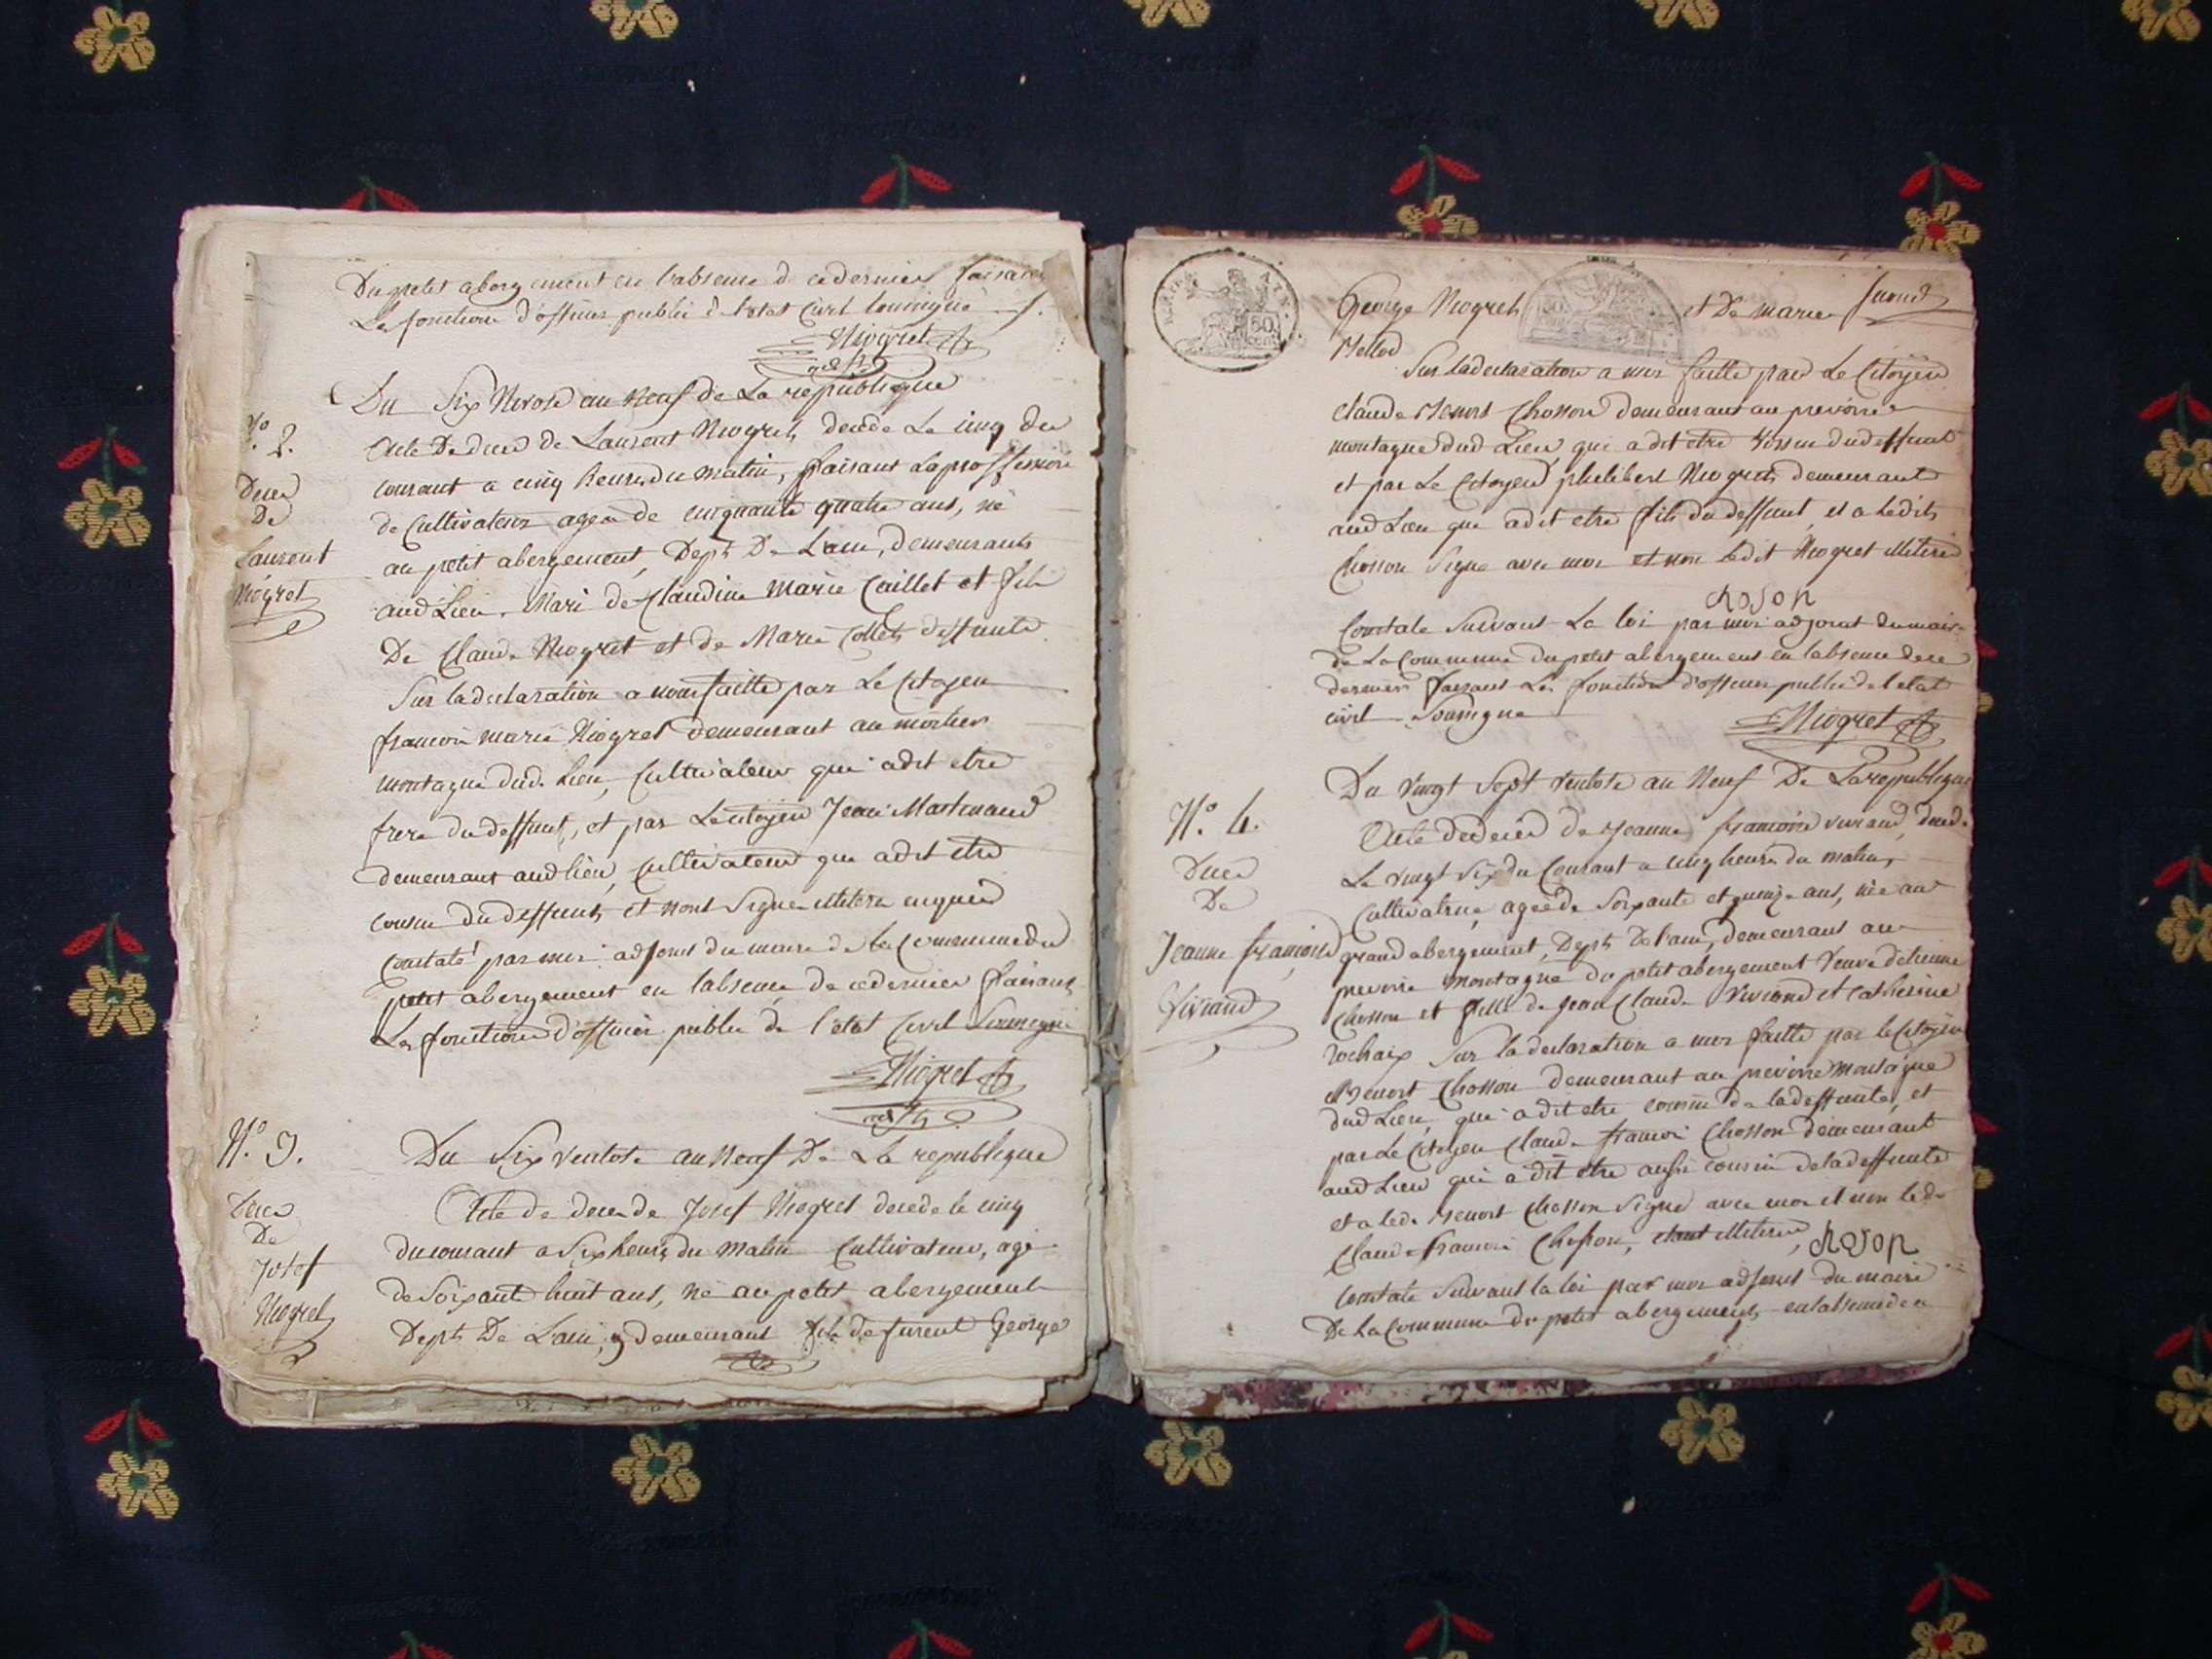 Du petit abergement en l'absence de ce dernier faisant
Les fonctions d'officier public de l'etat Civil soussigné
Niogret
adjt
Du Six Nivose an Neuf de La republique
No. 2.
Deces
De
Laurent
Niogret
Acte De deces de Laurent Niogret, decede Le cinq du
courant a cinq heures du matin, faisant La proffession
de Cultivateur agee de cinquante quatre ans, né
au petit abergement, Dept. De Lain, demeurant
aud Lieu. Mari de Claudine Marie Caillet et fils
De Claude Niogret et de Marie Collet deffunte
Sur la declaration a nous faitte par Le Citoyen
francois marie Niogret demeurant au mortier
montagne dud. Lieu, Cultivateur qui a dit etre
frere du deffunt, et par Le citoyen Jean Martinand
demeurant aud lieu, Cultivateur qui a dit etre
cousin du deffunt, et nont Signe illiteré enquis
Constaté par moi adjoint du maire de la Commune du
petit abergement en labsence de ce dernier faisant
Les fonctions d'officier public de l'etat Civil Soussigné
Niogret
adjt
No. 3.
Deces
De
Josef
Niogret
Du Six ventose an Neuf De La republique
Acte de deces de Josef Niogret decede le cinq
du courant a Six heures du matin Cultivateur, agé
de Soixante huit ans, né au petit abergement
Dept. De Lain, y demeurant fils de furent George
George Niogret et De marie
Mellod
Sur la declaration a moi faitte par Le Citoyen
Claude Benoit Chosson demeurant au prevoire
montagne dud Lieu, qui a dit etre Voisin dud deffunt
et par Le Citoyen philibert Niogret demeurant
aud Lieu qui a dit etre fils du deffunt, et a ledit
Chosson Signe avec moi et non ledit Niogret illiteré
choson
Constaté Suivant La loi par moi adjoint du maire
de La Commune du petit abergement en labsence de ce
dernier faisant Les fonctions d'officier public de l'etat
civil Soussigné
Niogret
No. 4.
Deces
De
Jeanne francoise
Viviand
Du Vingt Sept Ventose an Neuf De La republique
Acte de deces de Jeanne francoise viviand, decede
Le vingt Six du Courant a cinq heures du matin,
Cultivatrice, agee de Soixante et quinze ans, née au
grand abergement, Dept. De lain, demeurant au
prevoire montagne du petit abergement Veuve d'etienne
Chosson et fille de Jean Claude Viviand et Catherine
rochaix Sur la declaration a moi faitte par le Citoyen
Benoit Chosson demeurant au prevoire montagne
dud Lieu, qui a dit etre cousin de la deffunte, et
par Le Citoyen Claude francois Chosson demeurant
aud Lieu qui a dit etre aussi cousin de la deffunte
et a led. Benoit Chosson Signe avec moi et non led.
Claude francois Chosson, etant illiteré,
choson
Constaté Suivant la loi par moi adjoint du maire
De La Commune du petit abergement en labsence de ce